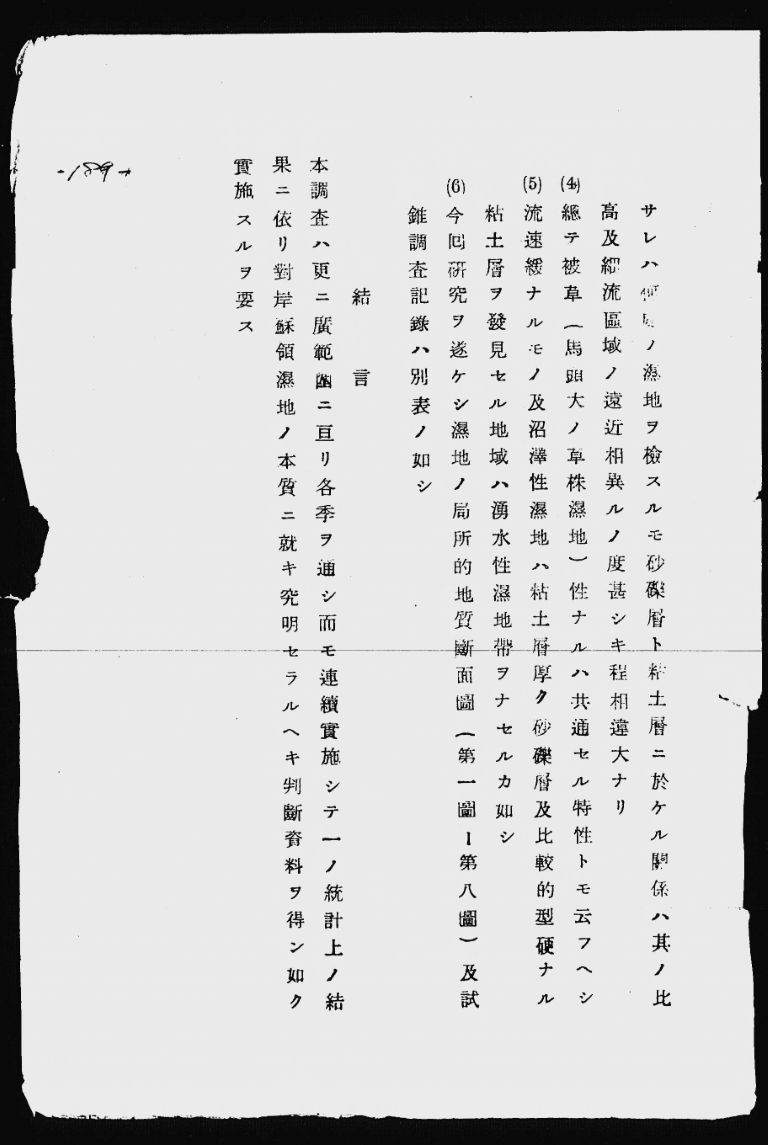 サレハ何レノ濕地ヲ檢スルモ砂礫層ト粘土層ニ於ケル關係ハ其ノ比
高及細流區域ノ遠近相異ルノ度甚シキ程相違大ナリ
(4)總テ被草(馬頭大ノ草株濕地)性ナルハ共通セル特性トモ云フヘシ
(5)流速緩ナルモノ及沼澤性濕地ハ粘土層厚ク砂礫層及比較的型硬ナル
粘土層ヲ發見セル地域ハ湧水性濕地帶ヲナセルカ如シ
(6)今囘硏究ヲ遂ケシ濕地ノ局所的地質斷面圖(第一圖ー第八圖)及試
錐調査記錄ハ別表ノ如シ
結言
本調査ハ更ニ廣範圍ニ亘リ各季ヲ通シ而モ連續實施シテ一ノ統計上ノ結
果ニ依リ對岸蘇領濕地ノ本質ニ就キ究明セラルヘキ判斷資料ヲ得ン如ク
實施スルヲ要ス